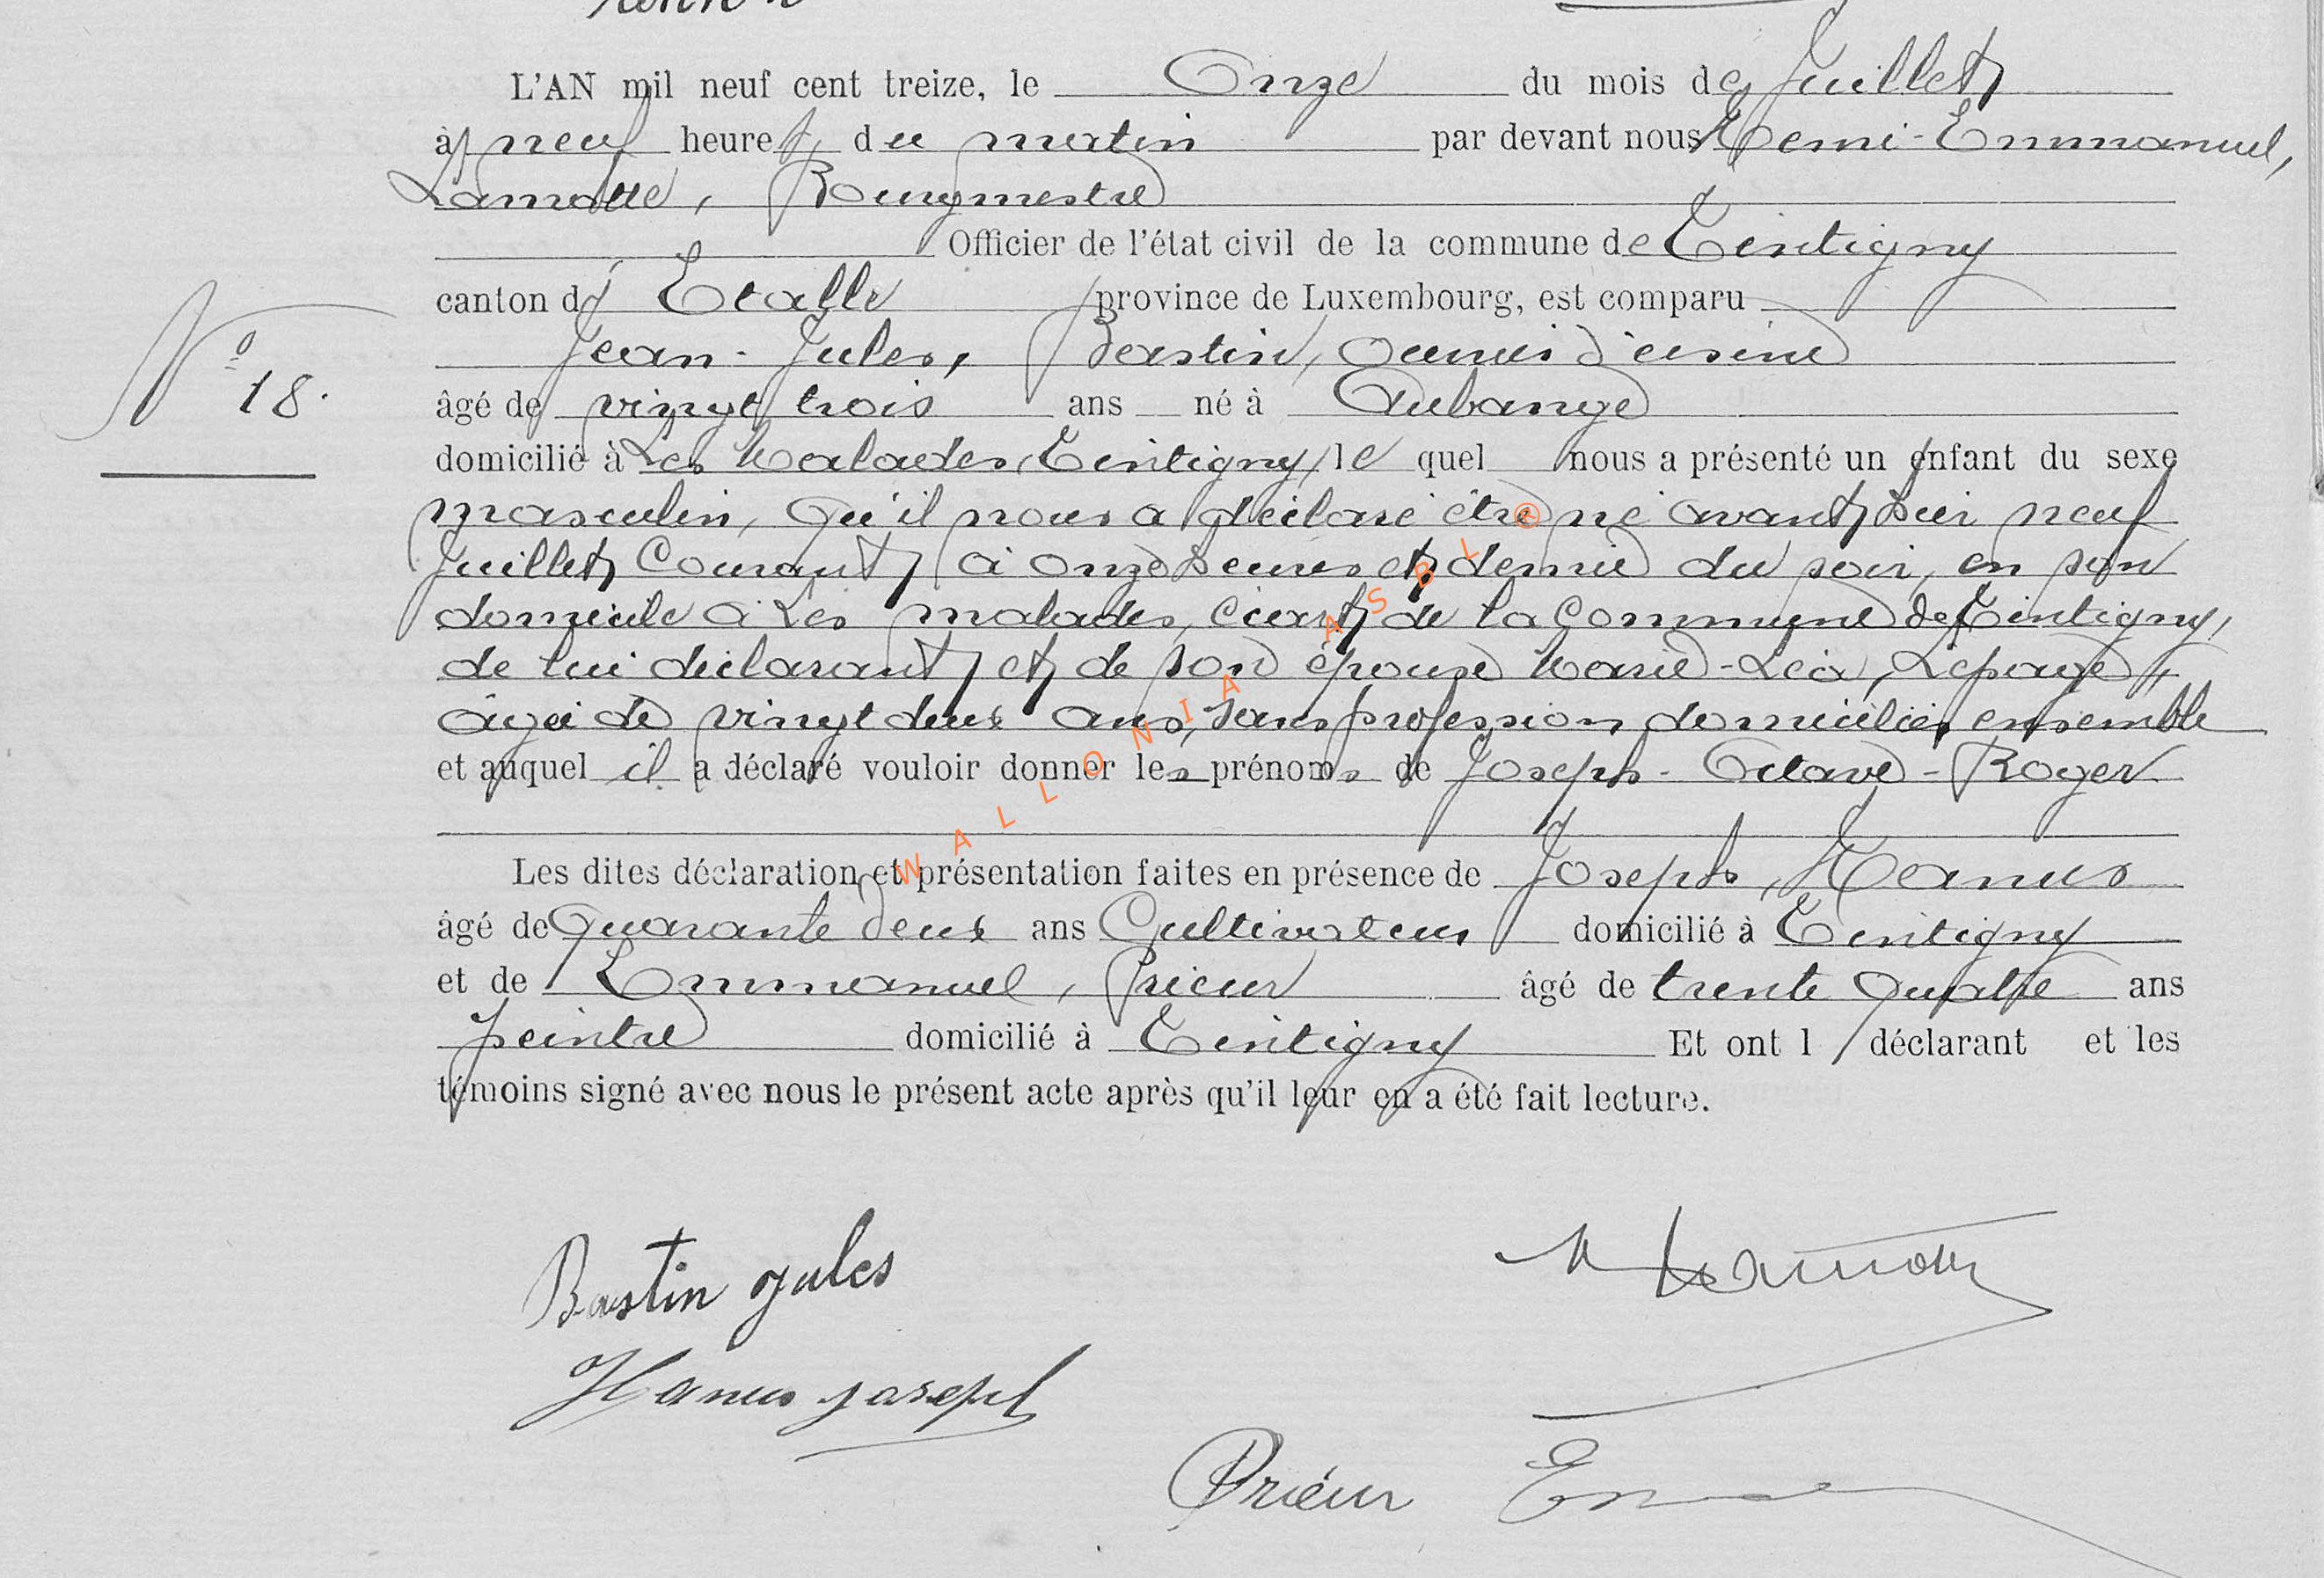 L'AN mil neuf cent treize, le Onze du mois de Juillet
à neuf heures du matin par devant nous Henri-Emmanuel,
Lamotte, Bourgmestre
Officier de l'état civil de la commune de Tintigny
canton d' Etalle province de Luxembourg, est comparu
Jean-Jules, Bastin, ouvrier d'usine
N° 18.
âgé de vingt trois ans né à Aubange
domicilié à Les Malades, Tintigny, le quel nous a présenté un enfant du sexe
masculin, qu'il nous a déclaré être né avant hier neuf
Juillet Courant, à onze heures et demie du soir, en son
domicile à Les malades, écart de la Commune de Tintigny,
de lui déclarant et de son épouse Marie-Léa, Lepage,
âgée de vingt deux ans, sans profession domiciliés ensemble
et auquel il a déclaré vouloir donner les prénoms de Joseph-Octave-Roger
Les dites déclaration et présentation faites en présence de Joseph, Hanus
âgé de Quarante deux ans Cultivateur domicilié à Tintigny
et de Emmanuel, Prieur âgé de trente quatre ans
peintre domicilié à Tintigny Et ont l déclarant et les
témoins signé avec nous le présent acte après qu'il leur en a été fait lecture.
Bastin Jules
Hanus Joseph
Prieur Em
WALLONIA ASBL ®